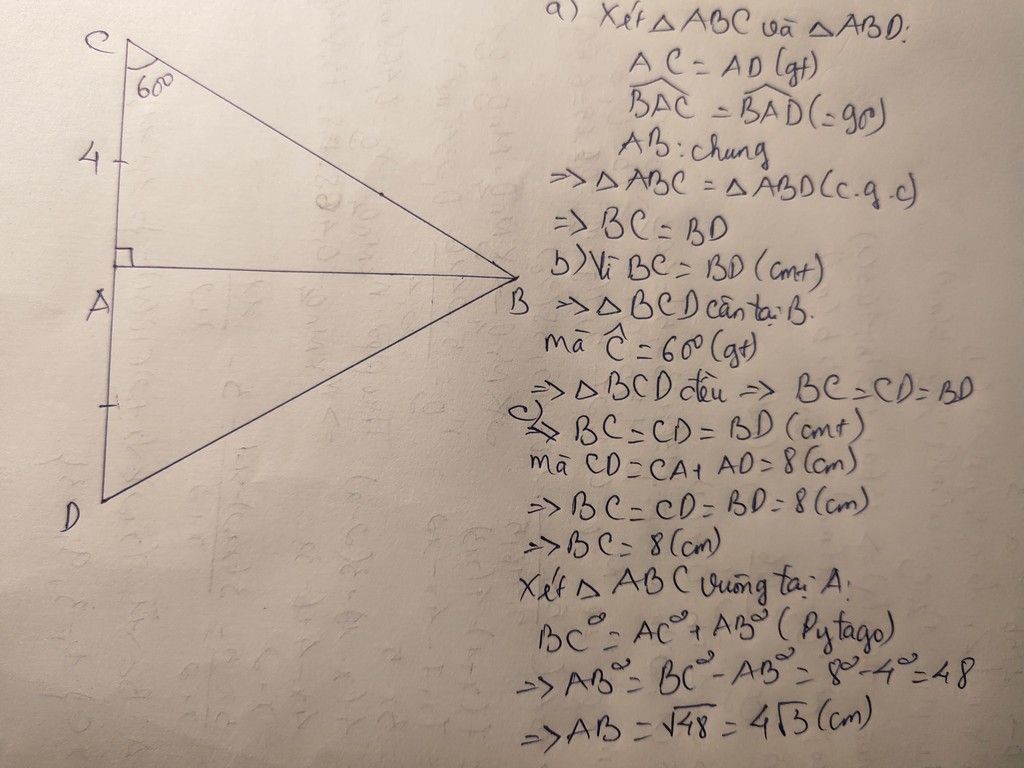 C
60°
4
A
B
D
a) Xét △ ABC và △ ABD:
AC = AD (gt)
\widehat{BAC} = \widehat{BAD} (= 90°)
AB: chung
=> △ ABC = △ ABD (c.g.c)
=> BC = BD
b) Vì BC = BD (cmt)
=> △ BCD cân tại B.
mà \widehat{C} = 60° (gt)
=> △ BCD đều => BC = CD = BD
c)
=> BC = CD = BD (cmt)
mà CD = CA + AD = 8 (cm)
=> BC = CD = BD = 8 (cm)
=> BC = 8 (cm)
Xét △ ABC vuông tại A:
BC² = AC² + AB² (Pytago)
=> AB² = BC² - AB² = 8² - 4² = 48
=> AB = √48 = 4√3 (cm)